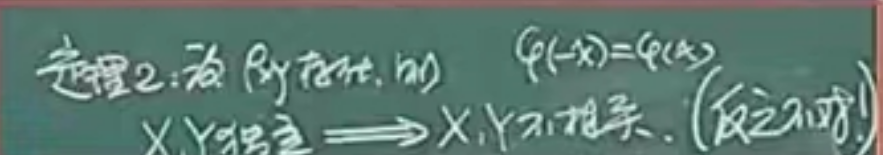 定理2:设 ρxy存在,则 φ(-x)=φ(x)
X,Y独立 ⟹ X,Y不相关.(反之不对!)